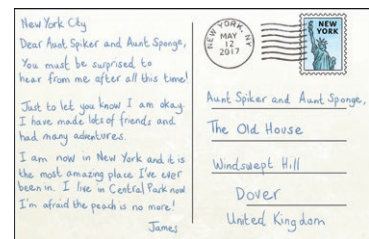 New York City
Dear Aunt Spiker and Aunt Sponge,
You must be surprised to
hear from me after all this time!
Just to let you know I am okay.
I have made lots of friends and
had many adventures.
I am now in New York and it is
the most amazing place I've ever
been in. I live in Central Park now
I'm afraid the peach is no more!
James
NEW YORK, NY
MAY
12
2017
NEW
YORK
Aunt Spiker and Aunt Sponge,
The Old House
Windswept Hill
Dover
United Kingdom